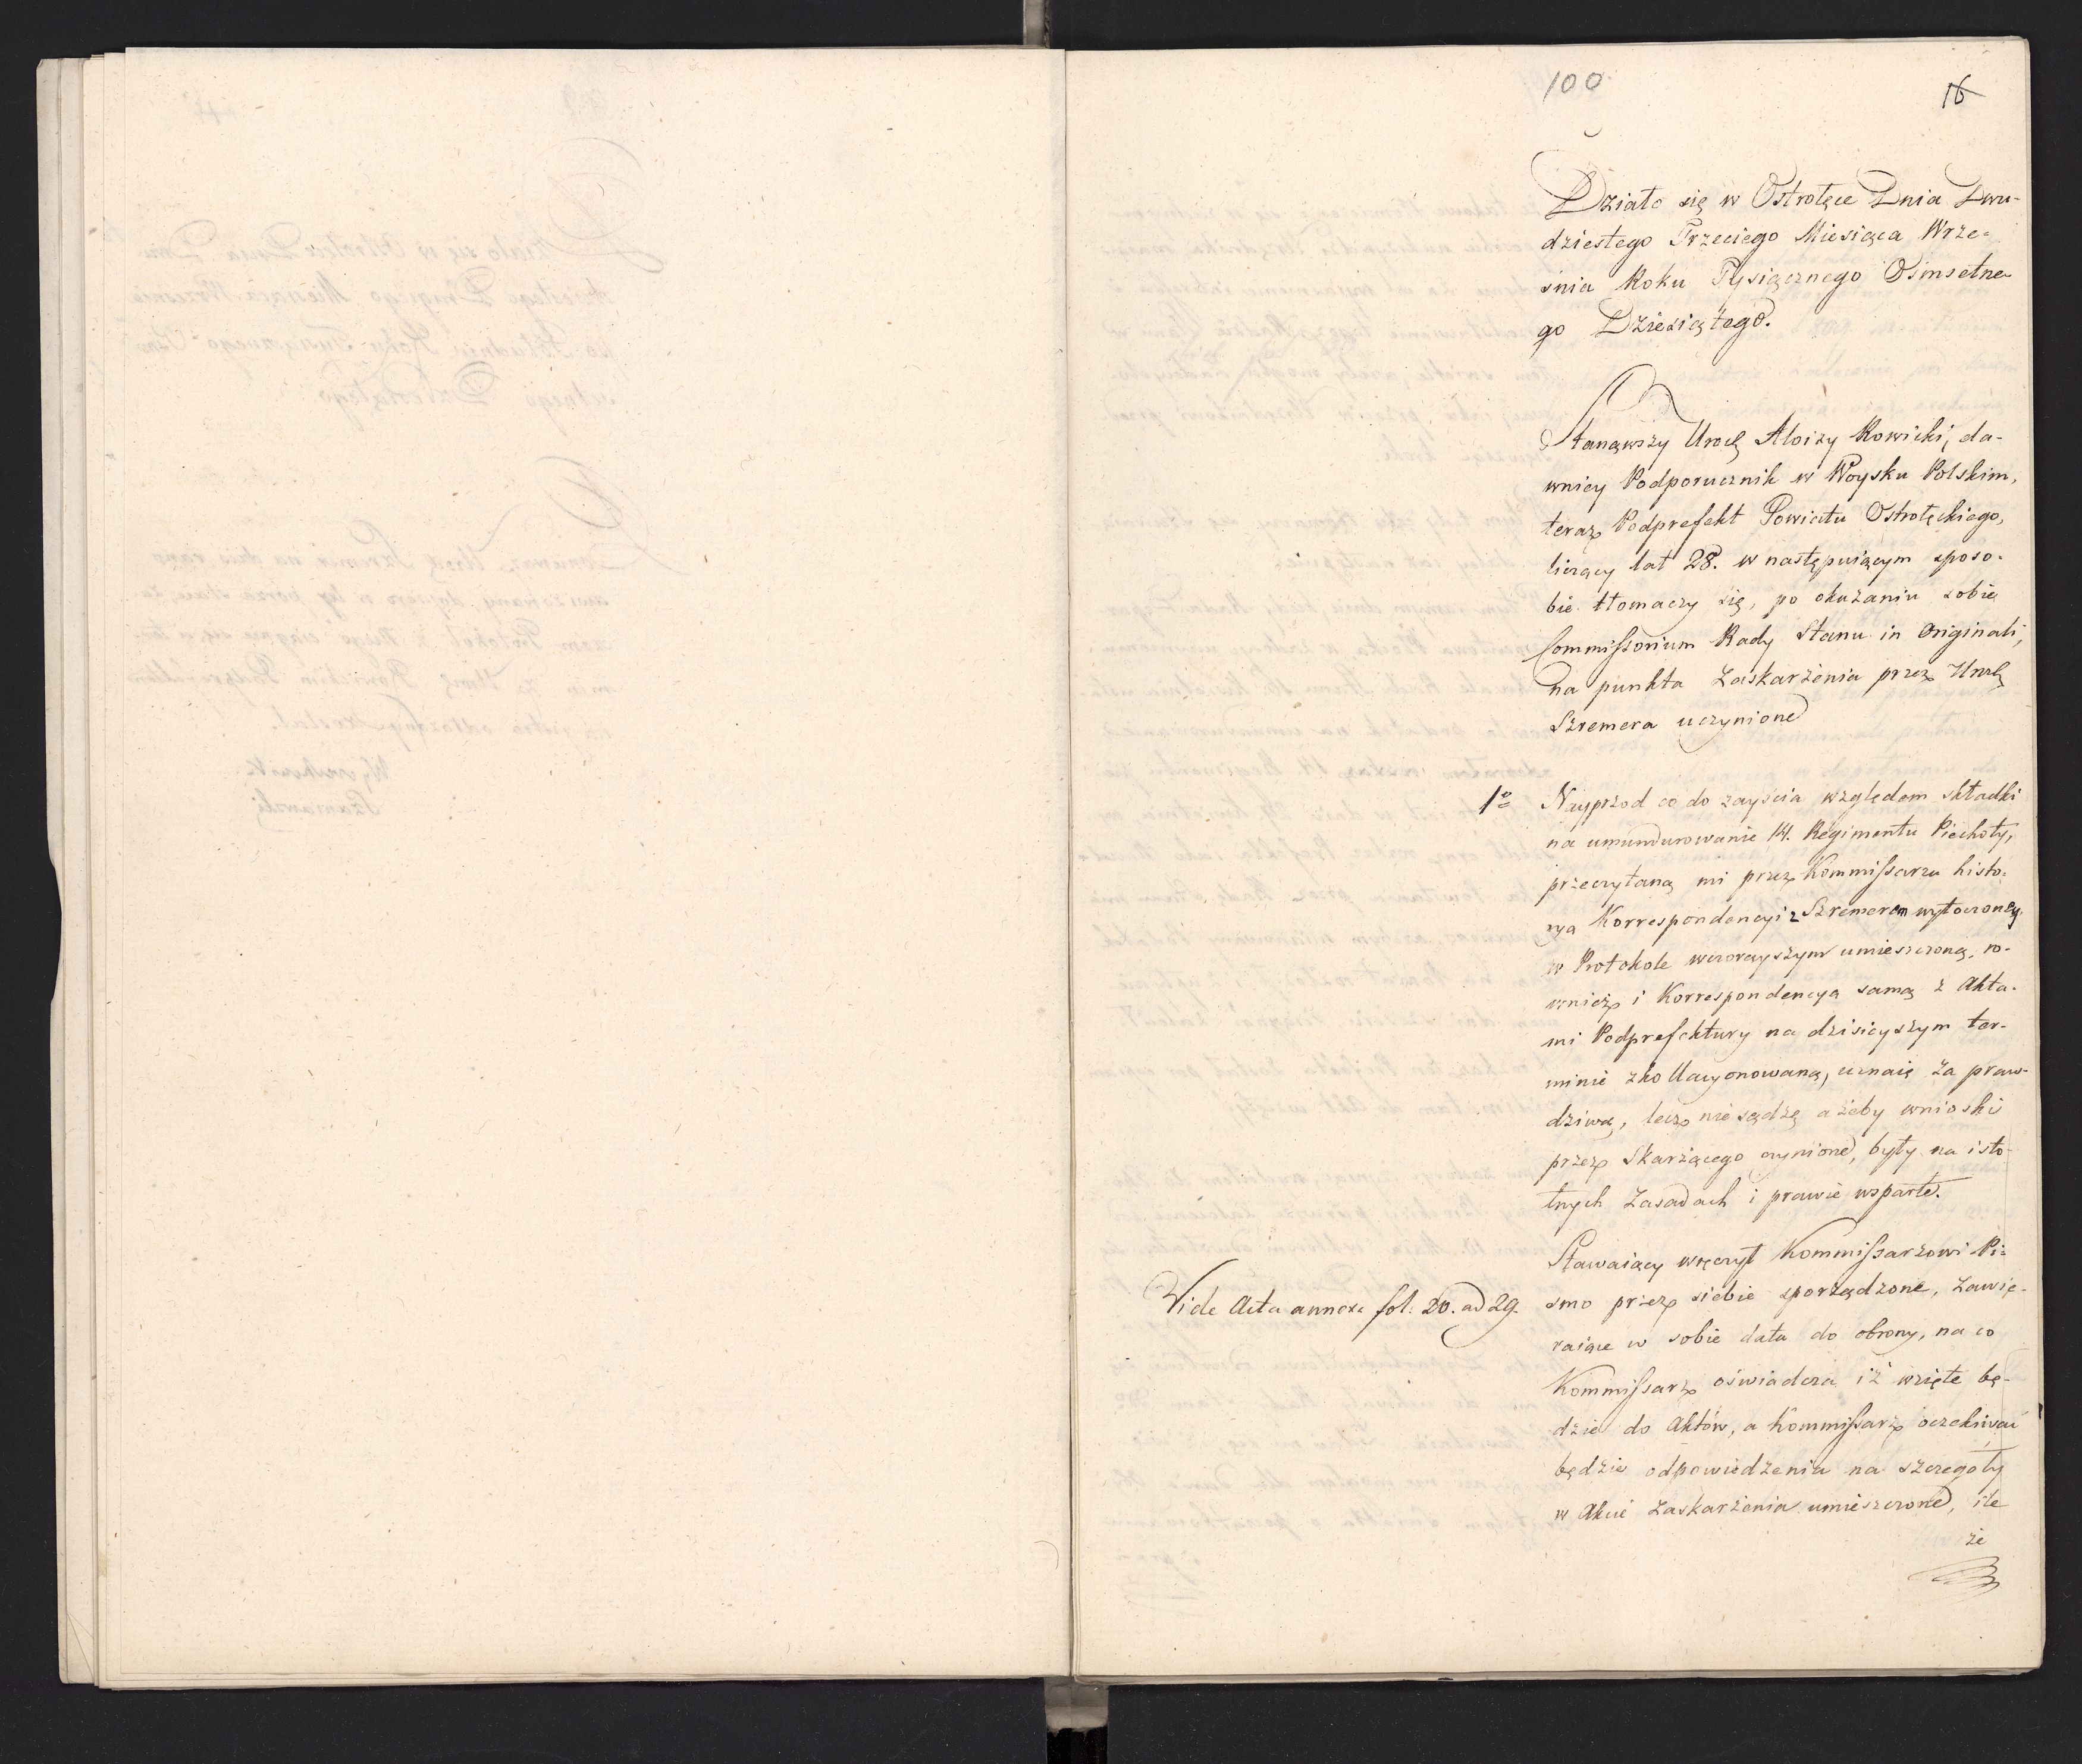 100
16
Działo się w Ostrołęce Dnia Dwu-
dziestego Trzeciego Miesiąca Wrze-
śnia Roku Tysiącznego Osmsetne
go Dziesiątego.
Stanąwszy Urodz Aloizy Rowicki, da-
wniey Podporucznik w Woysku Polskim,
teraz Podprefekt Powiatu Ostrołęckiego,
liczący lat 28. w następuiącym sposo-
bie tłomaczy się, po okazaniu sobie
Commissorium Rady Stanu in Originali,
na punkta Zaskarżenia przez Urodz
Szremera uczynione
1o Nayprzod co do zayścia względem składki
na umundurowanie 14. Regimentu Piechoty,
przeczytaną mi przez Kommissarza histo-
rya Korrespondencyi z Szremerem wytoczoney
w Protokole wczorayszym umieszczoną, ro-
wnież i Korrespondencya samą z Akta-
mi Podprefektury na dzisieyszym ter-
minie zkollacyonowaną, uznaię za praw-
dziwą, lecz nie sądzę ażeby wnioski
przez Skarżącego czynione, były na isto-
tnych Zasadach i prawie wsparte.
Stawaiący wręczył Kommissarzowi Pi-
Vide Acta annexa fol: 20. ad 29.
smo przez siebie sporządzone, zawie-
raiące w sobie data do obrony, na co
Kommissarz oświadcza iż wzięte bę-
dzie do Aktów, a Kommissarz oczekiwać
będzie odpowiedzenia na szczegoły
w Akcie Zaskarżenia umieszczone, ile
że